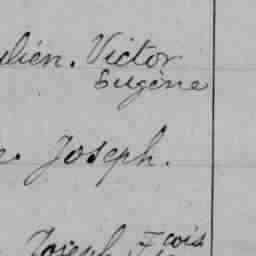 ulien. Victor
Eugène
e. Joseph.
Joseph Fcois